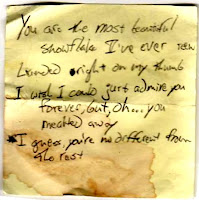 You are the most beautiful
snowflake I've ever seen
Landed right on my thumb
I wish I could just admire you
forever, but, oh...you
melted away
I guess, you're no different from
the rest